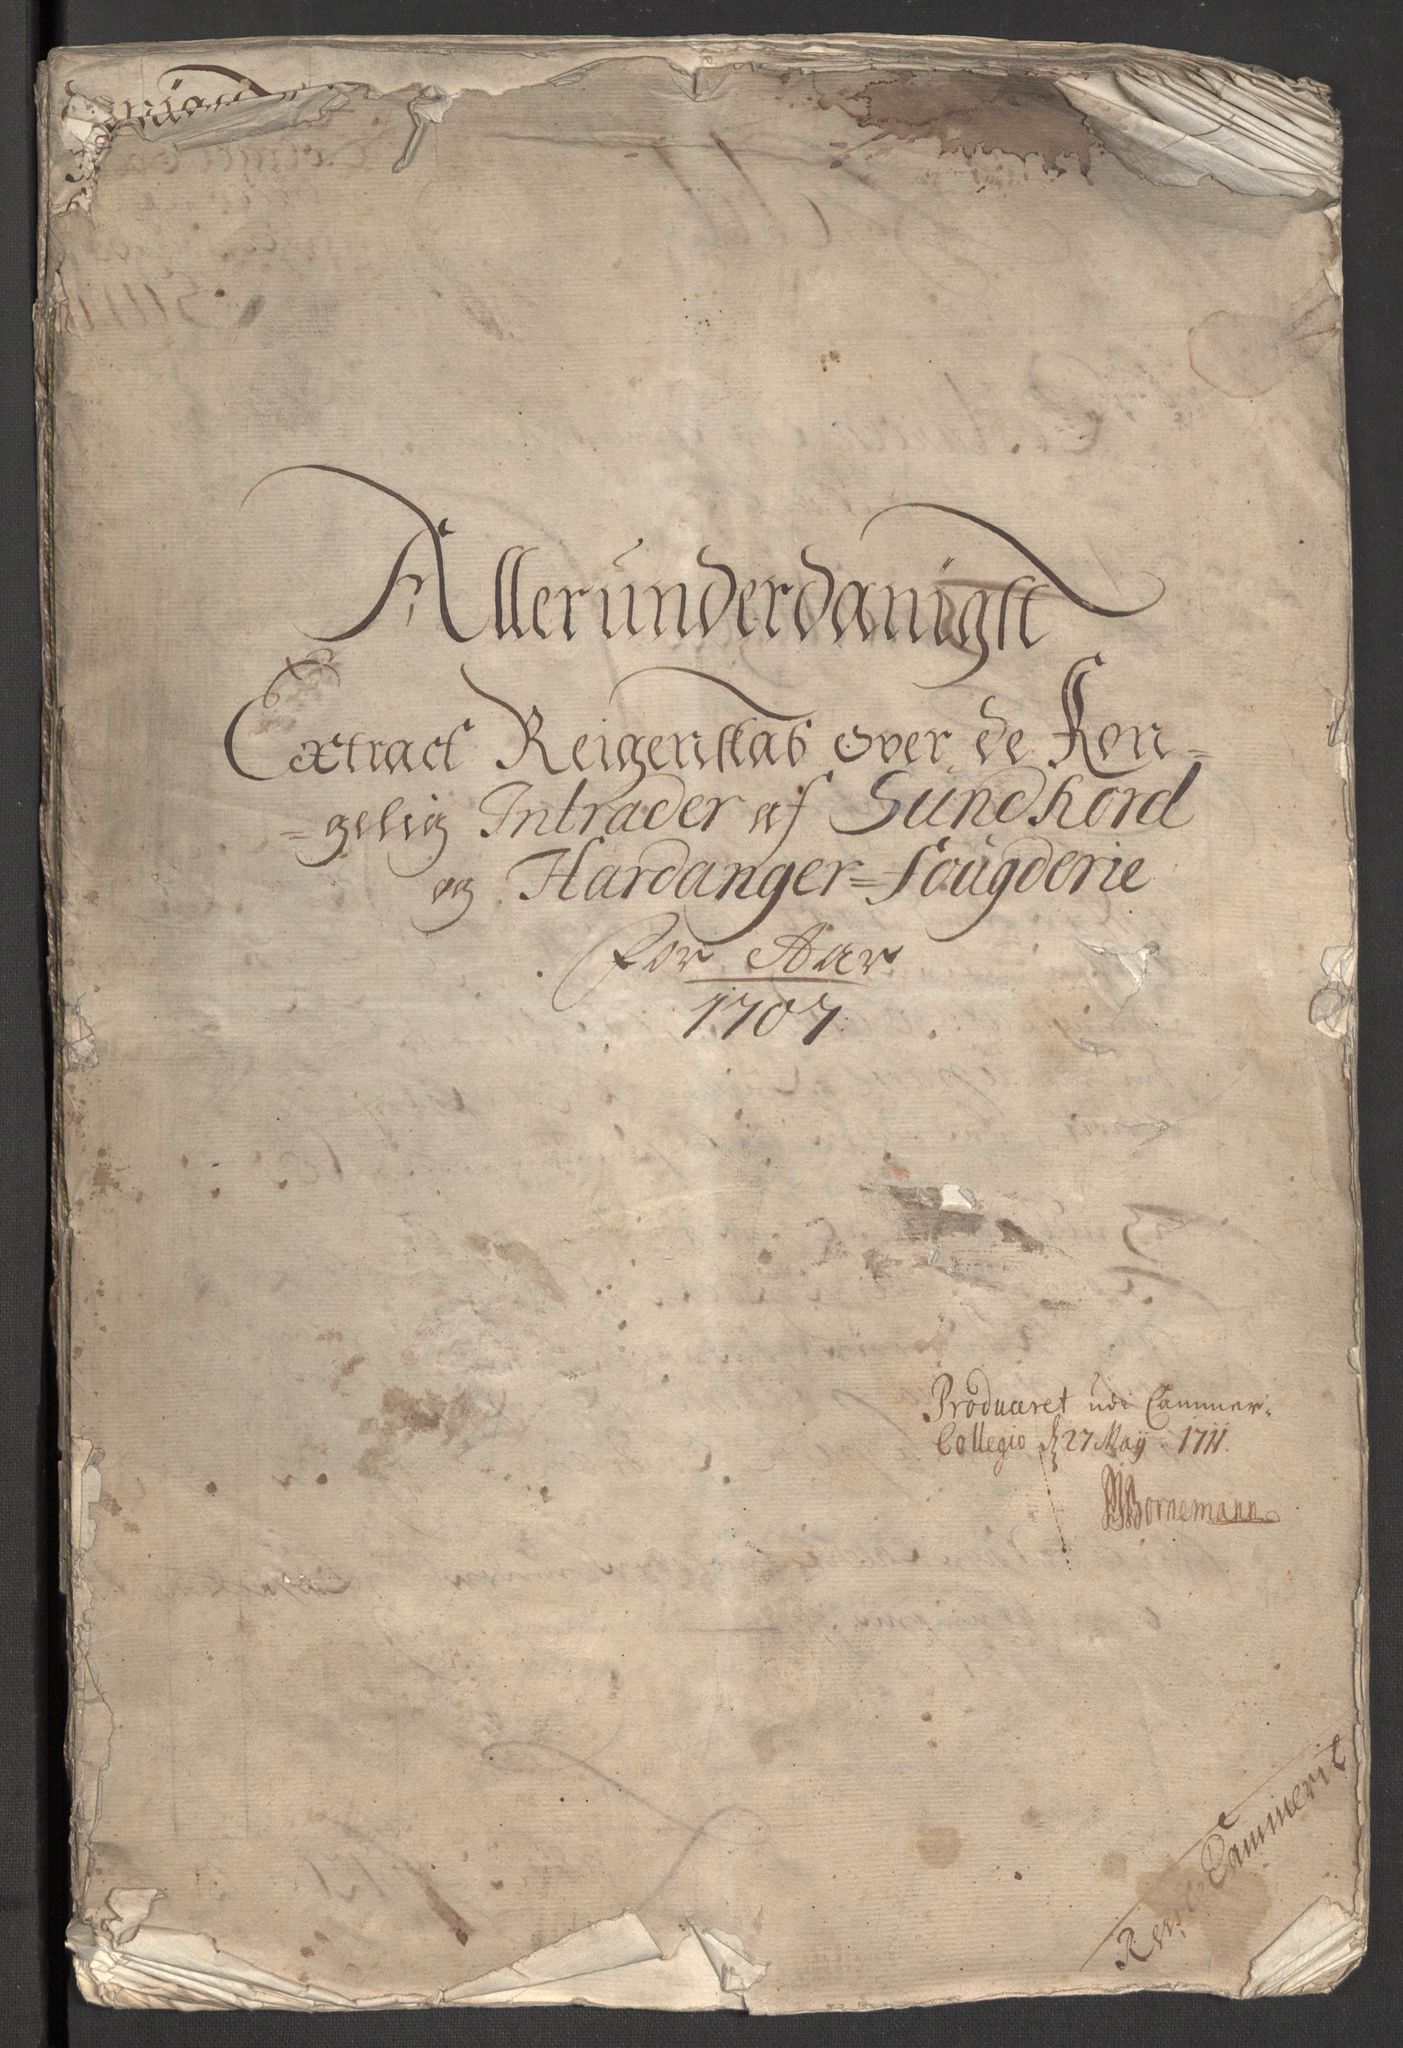 Allerúnderdanigst
Extract Reigenskab over de Kon=
=gelig Intrader af Súndhord
og Hardanger=Foúgderie
for Aar
1707
Produceret udi Cammer=
Collegio d 27 Maij 1711.
Bornemann
Rente Cammerit